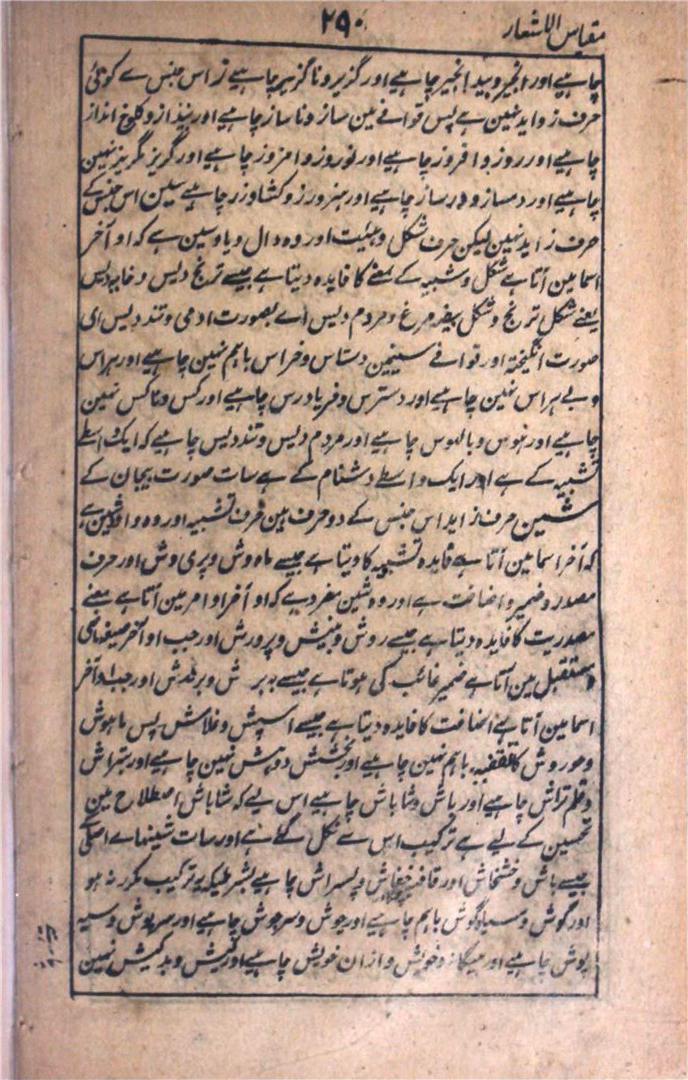 مقیاس الاشعار
۲۹۰
چاہیے اور انجیر و بید انجیر چاہیے اور گزیر و ناگزیر چاہیے ز اس جنس سے کوئی
حرف زواید نہین ہے پس قوافے مین ساز و ناساز چاہیے اور نیند از و کلوخ انداز
چاہیے اور روز و افروز چاہیے اور نوروز و امروز چاہیے اور گریز مگریز نہین
چاہیے اور دمساز و درساز چاہیے اور ہنرورز و کشاورز چاہیے سین اس جنس کے
حرف زاید نہین لیکن حرف شکل و ہیئت اور وہ دال و یا و سین ہے کہ او آخر
اسما مین آتا ہے شکل و شبیہ کے معنے کا فایدہ دیتا ہے جیسے ترنج دیس و خایہ دیس
یعنے شکل ترنج و شکل بیضہ مرغ و مردم دیس اے بصورت ادمی و تندیس ای
صورت انگیختہ اور قوافے سینین دستاس و خراس باہم نہین چاہیے اور ہراس
و بے ہراس نہین چاہیے اور دسترس و فریادرس چاہیے اور کس و ناکس نہین
چاہیے اور ہوس و بالہوس چاہیے اور مردم دیس و تندیس چاہیے کہ ایک واسطے
تشبیہ کے ہے اور ایک واسطے دشنام کے ہے سات صورت بیجان کے
شین حرف زاید اس جنس کے دو حرف ہین حرف تشبیہ اور وہ واو شین ہے
کہ آخر اسما مین آتا ہے فایدہ تشبیہ کا دیتا ہے جیسے ماہ وش و پری وش اور حرف
مصدر و ضمیر و اضافت ہے اور وہ شین مفرد ہے کہ او آخر اوامر مین آتا ہے معنے
مصدریت کا فایدہ دیتا ہے جیسے روش و منش و پرورش اور جب او آخر صیغہ ماضی
و مستقبل مین آتا ہے ضمیر غائب کی ہوتا ہے جیسے اور جب او آخر
اسما مین آتا ہے اضافت کا فایدہ دیتا ہے جیسے اسپش و غلامش پس ماہوش
و حوروش کا قافیہ باہم نہین چاہیے اور بخشش و دہش نہین چاہیے اور بتراش
و قلم تراش چاہیے اور باش و شاباش چاہیے اس لیے کہ شاباش اصطلاح مین
تحسین کے لیے ہے ترکیب اس سے نکل گئے ہے اور سات شینہاے اصلی
جیسے باش و خشخاش اور قافیہ و پسراش چاہیے بشرطیکہ یہ ترکیب مکرر نہ ہو
اور گوش و سیاہ گوش باہم چاہیے اور جوش و سرجوش چاہیے اور سرپوش و سیہ
پوش چاہیے اور بیگانہ و خویش و از ان خویش چاہیے اور کیش و بدکیش نہین